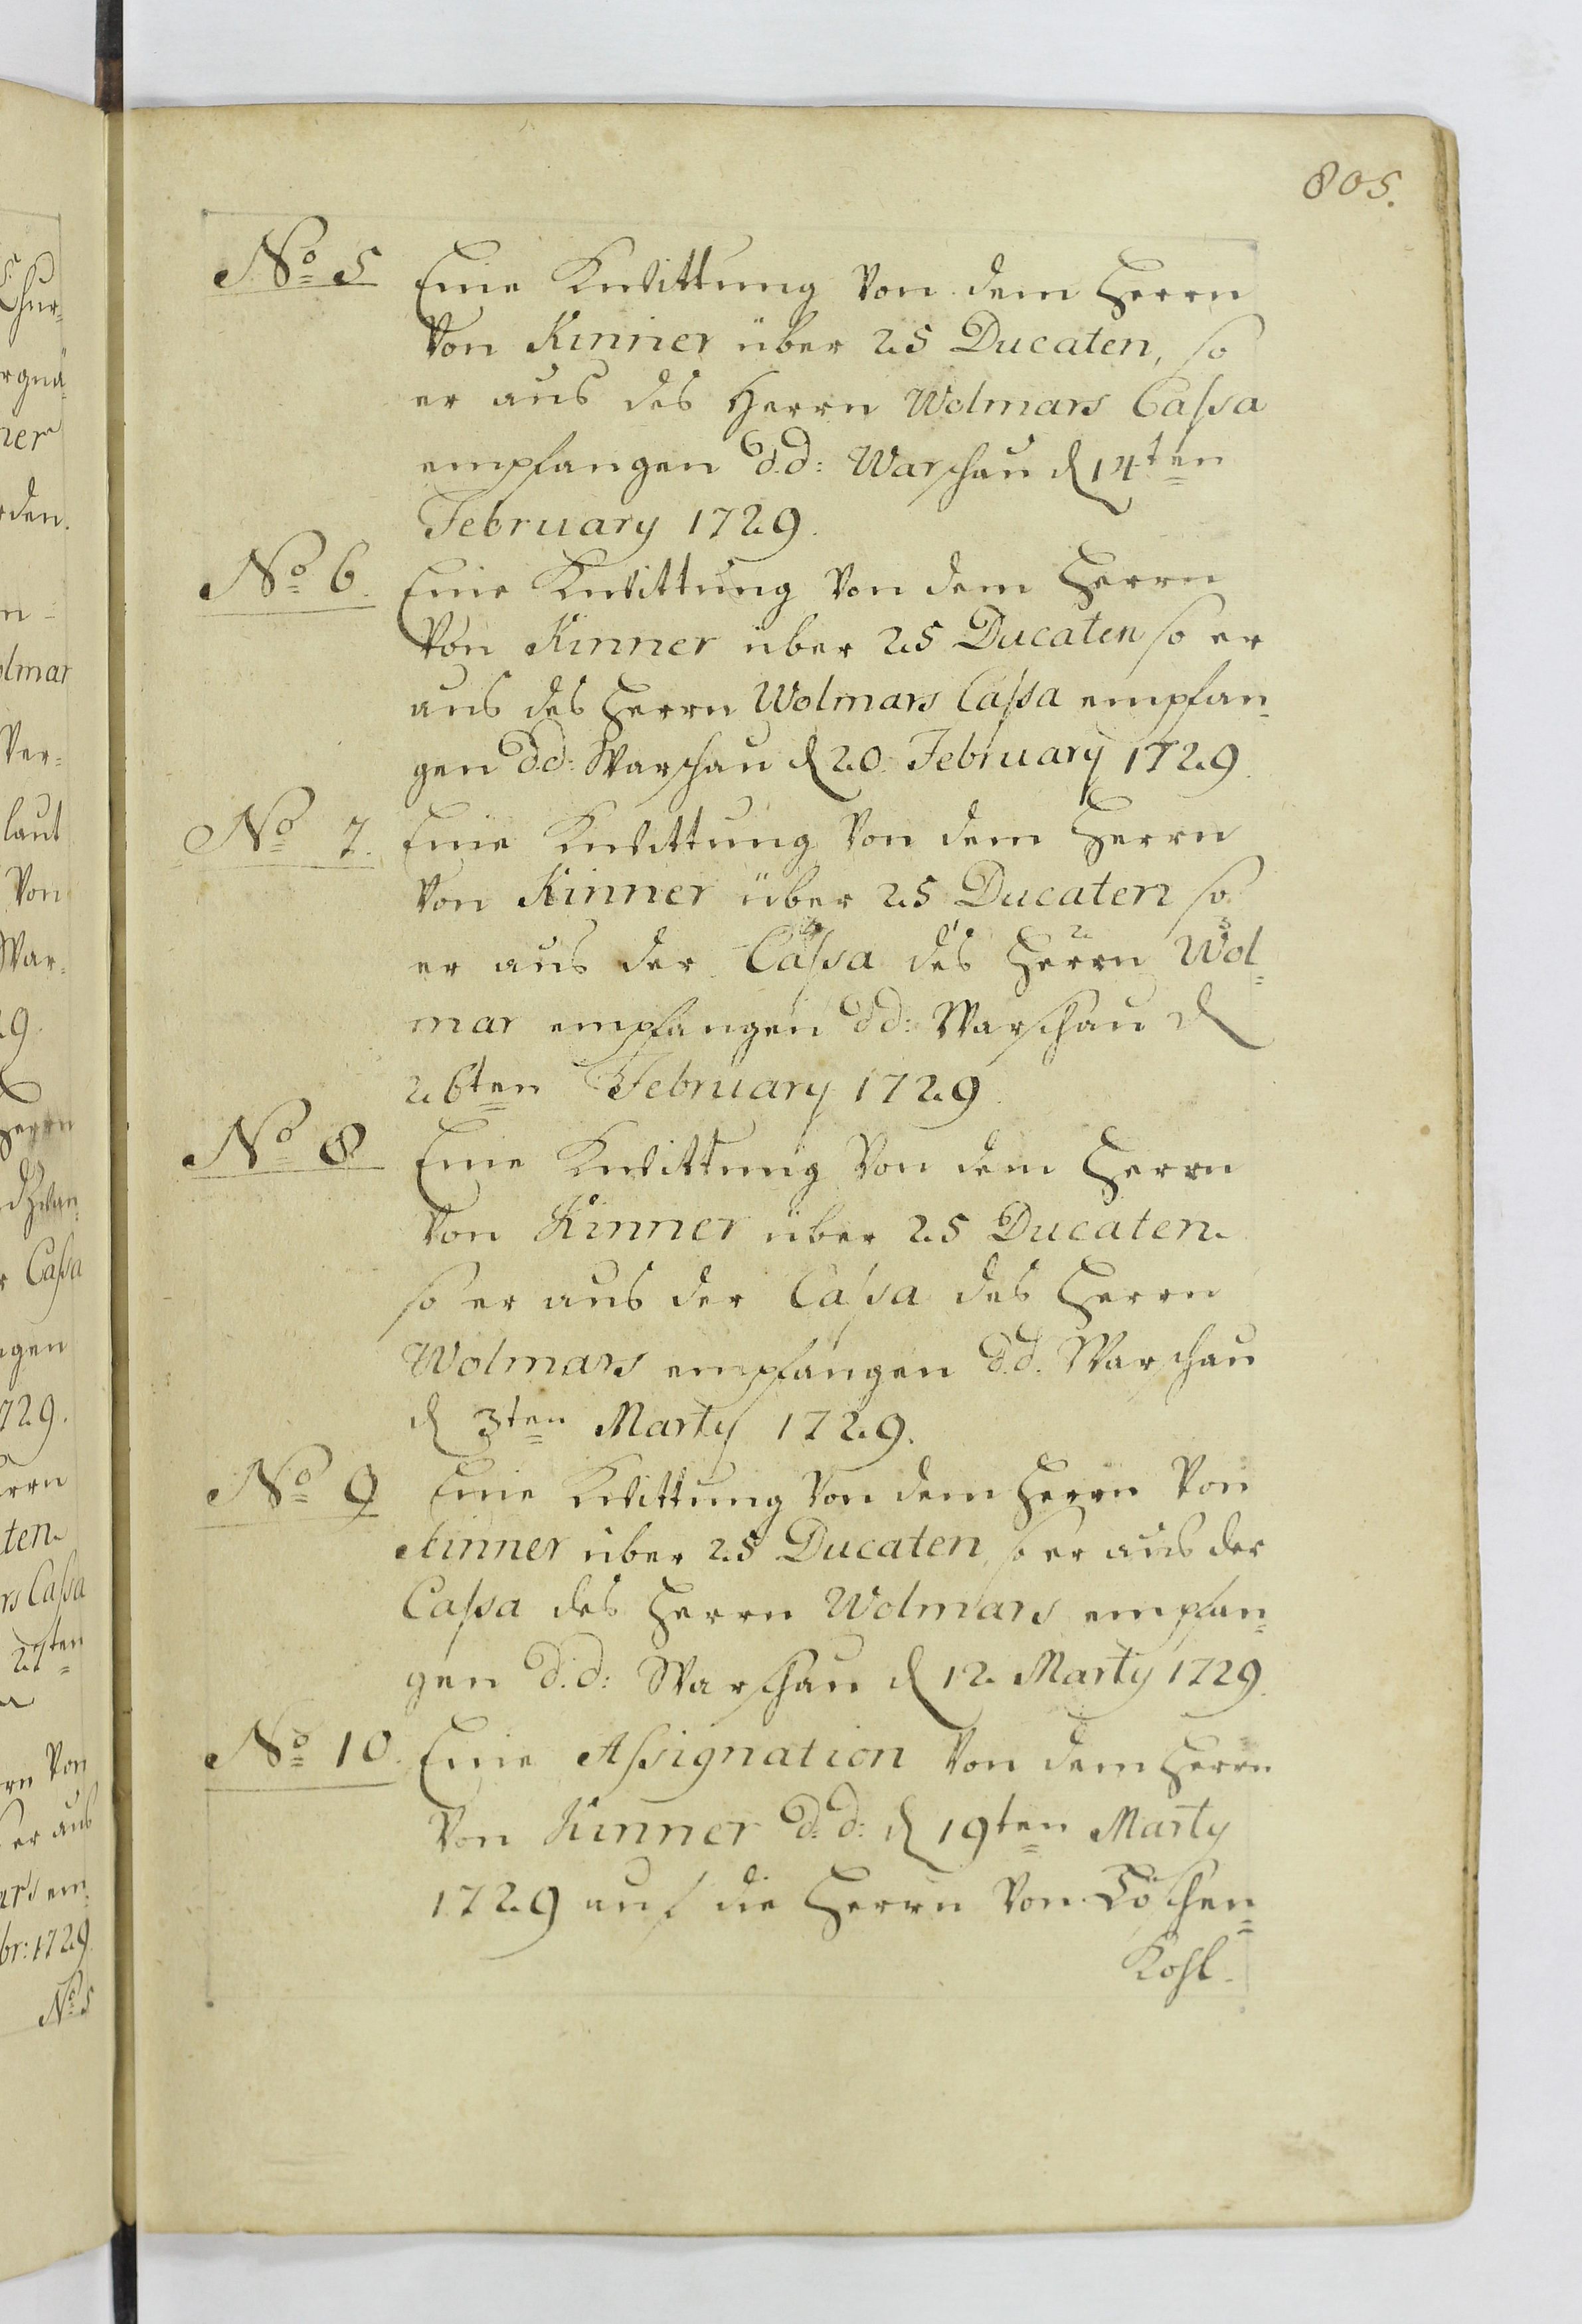 805.
No 5 Eine Kwittung Von dem Herrn
Von Kinner über 25 Ducaten, so
er aus des Herrn Wolmars Cassa
empfangen d.d: Warschau d 14ten
February 1729.
No 6. Eine Kwittung Von dem Herrn
Von Kinner über 25 Ducaten so er
aus des Herrn Wolmars Cassa empfan=
gen d.d: Warschau d 20. February 1729.
No 7. Eine Kwittung Von dem Herrn
Von Kinner über 25 Ducaten so
er aus der Cassa des Herrn Wol=
mar empfangen d.d: Warschau d
26ten February 1729.
No 8. Eine Kwittung Von dem Herrn
Von Kinner über 25 Ducaten.
so er aus der Cassa des Herrn
Wolmars empfangen d.d. Warschau
d 3ten Marty 1729.
No 9 Eine Kwittung Von dem Herrn Von
Kinner über 25 Ducaten, so er aus der
Cassa des Herrn Wolmars empfan=
gen d.d: Warschau d 12. Marty 1729.
No 10. Eine Assignation Von dem Herrn
Von Kinner d.d: d 19ten Marty
1729 auf die Herrn Von Löschen=
Kohl.